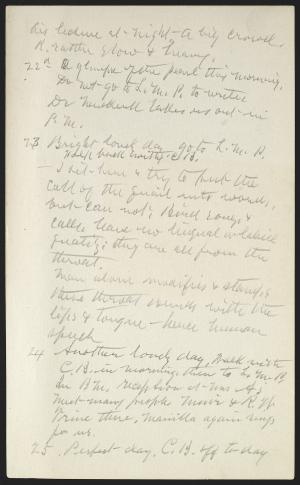 his lecture at night - A big crowd.
R. rather slow & heavy.
22nd A glimpse of the pearl this morning.
Do not go to L. M. R. to write
Dr takes us out in
P.M.
23 Bright lovely day - go to L. M. R.
Walk back with C.B.
- I sit here & try to put the
call of the quail into words,
but can not; Bird songs &
calls have no lingual or labial
quality; they are all from the
throat.
Man alone modifies &
these throat sounds with the
lips & tongue - hence human
speech
24 Another lovely day, walk with
C. B. in morning, then to L. M. R.
In P.M. reception at Mrs
meet many people Muir & R. W.
Trine there, again sings
for us.
25. Perfect day, C. B. off to day